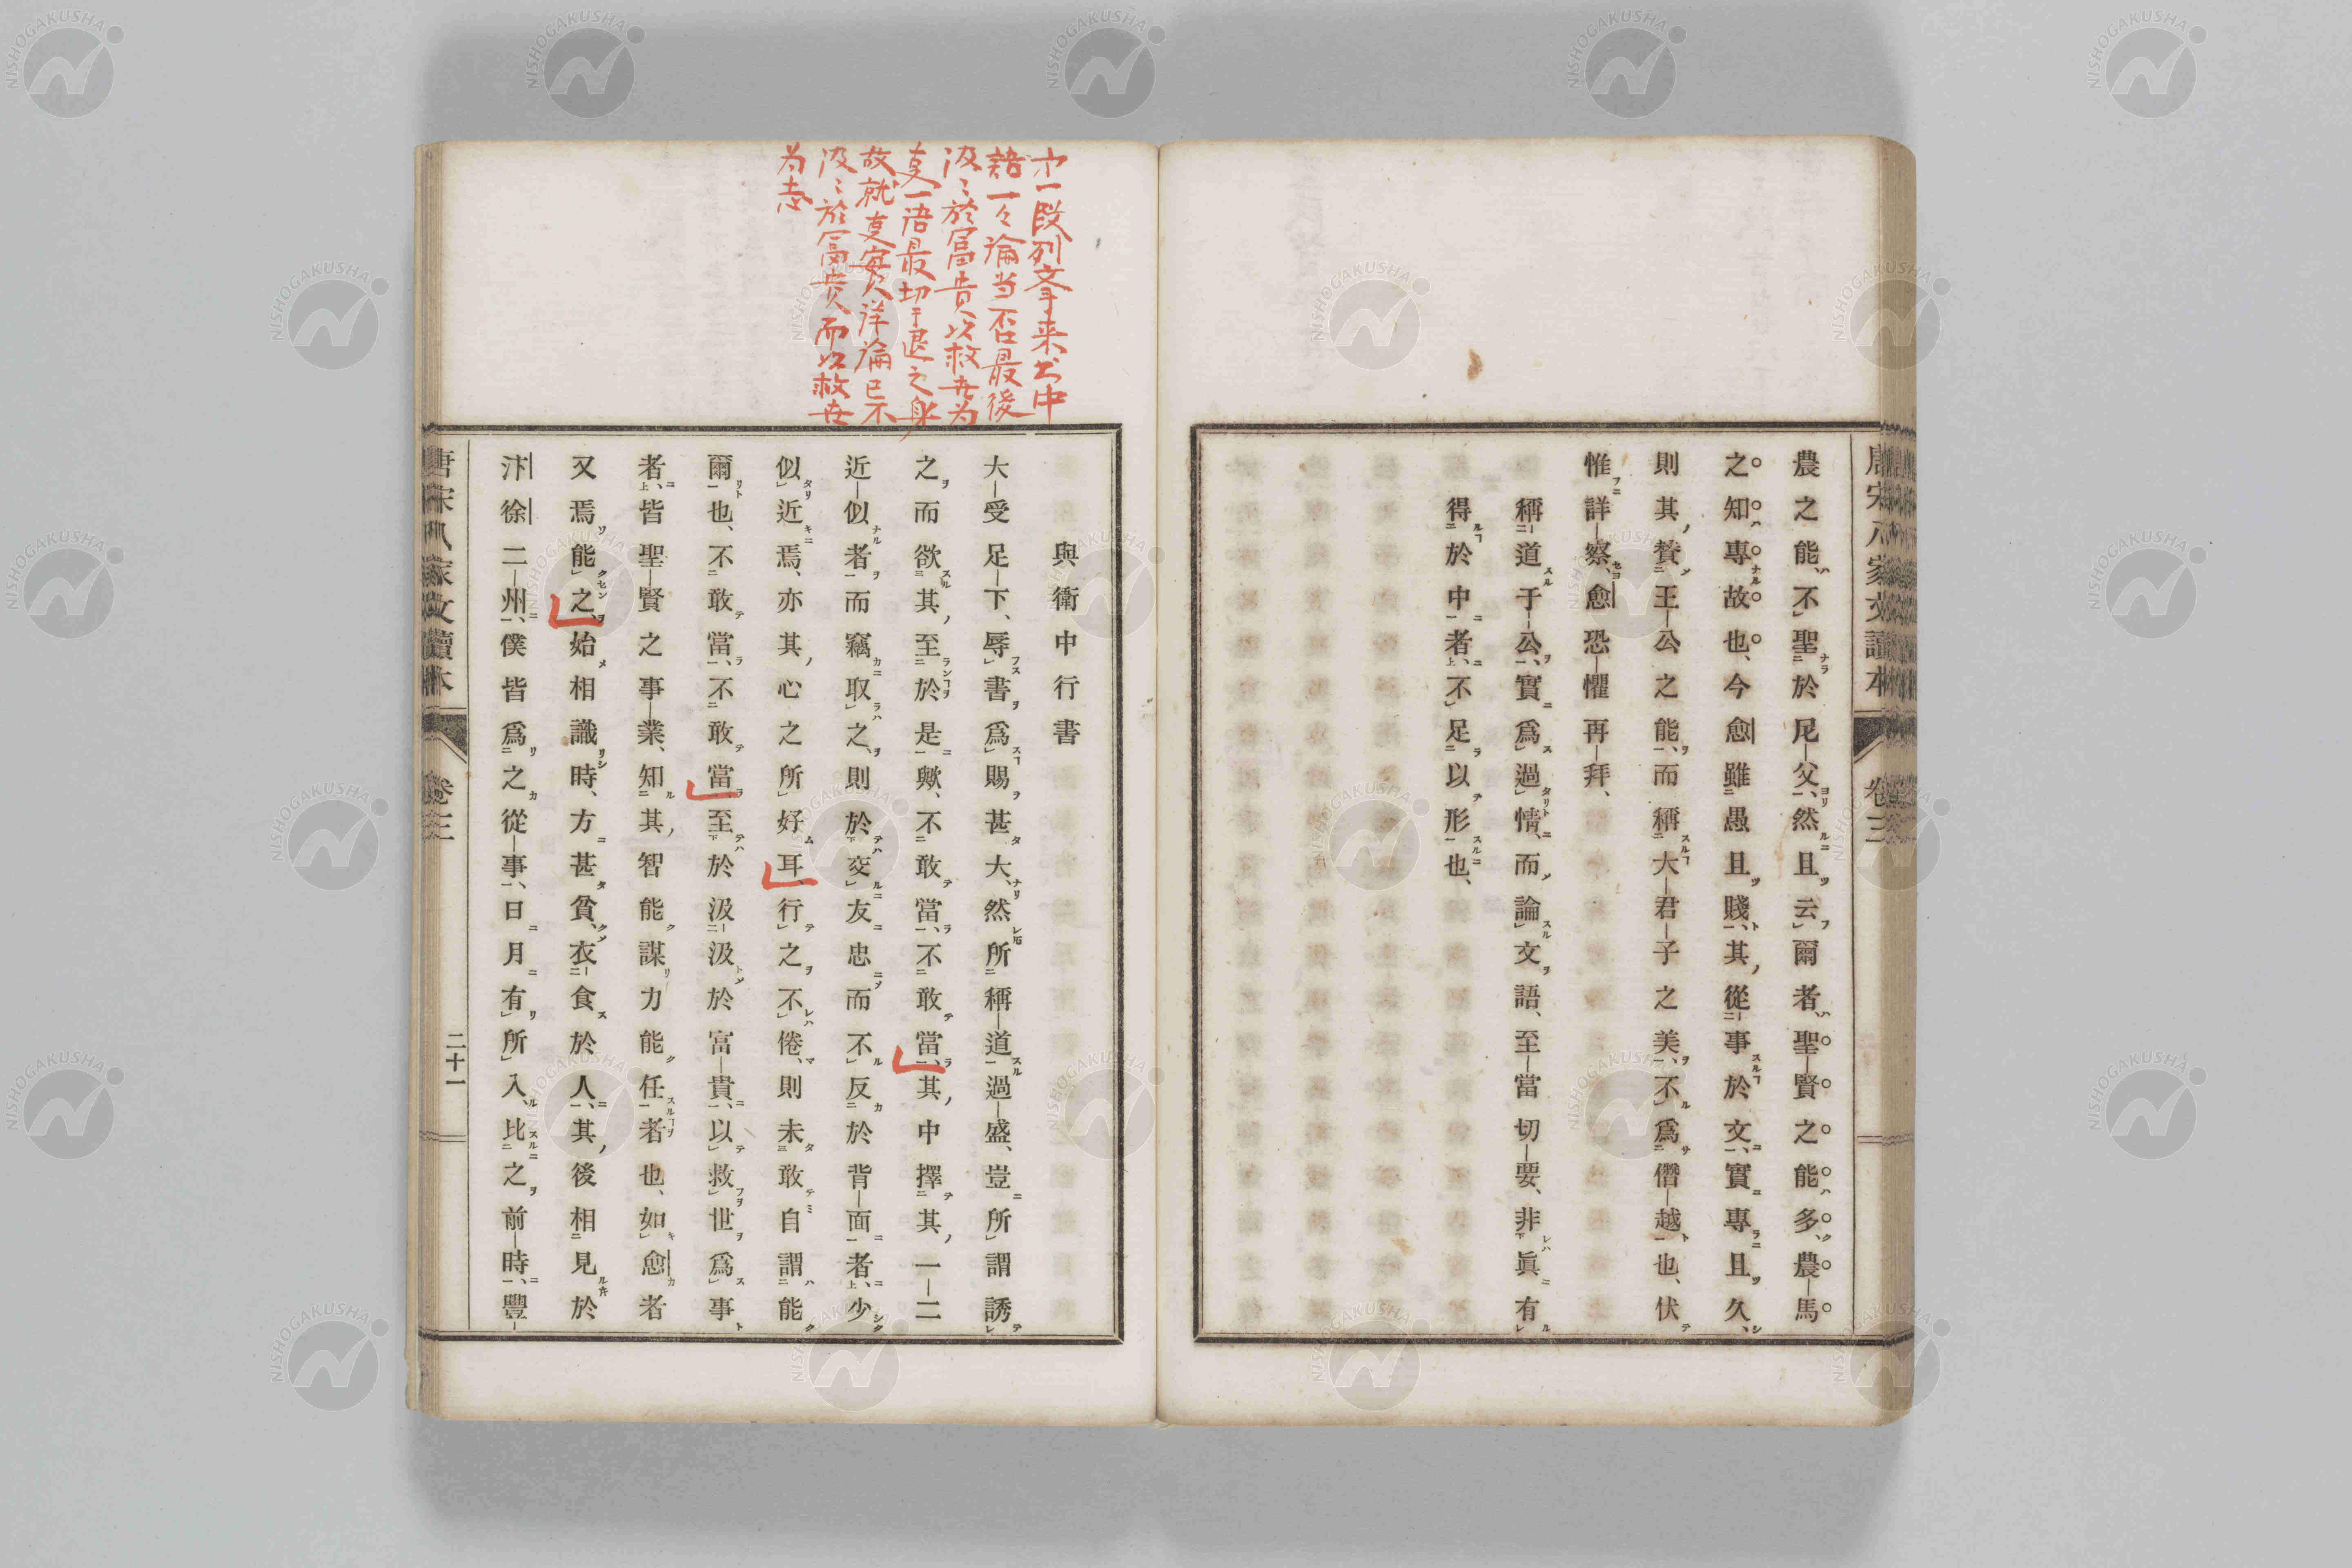 農之能、不聖於尼父、然且云爾者、聖賢之能多、農馬
之知專故也、今愈雖愚且賤、其從事於文、實專且久、
則其贊王公之能、而稱大君子之美、不爲僭越也、伏
惟詳察、愈恐懼再拜、
稱道于公、實爲過情、而論文語、至當切要、非眞有
得於中者、不足以形也、
唐宋八家文讀本 卷三
與衛中行書
大受足下、辱書爲賜甚大、然所稱道過盛、豈所謂誘
之而欲其至於是歟、不敢當、不敢當、其中擇其一二
近似者而竊取之、則於交友忠而不反於背面者、少
似近焉、亦其心之所好耳、行之不倦、則未敢自謂能
爾也、不敢當、不敢當、至於汲汲於富貴、以救世爲事
者、皆聖賢之事業、知其智能謀力能任者也、如愈者
又焉能之、始相識時、方甚貧、衣食於人、其後相見於
汴徐二州、僕皆爲之從事、日月有所入、比之前時、豐
唐宋八家文讀本 卷三 二十一
一段列挙来書中
語一々論当否最後
汲〻於富貴以救世为
事一语最切于退之身
故就事實洋論已不
汲〻於富貴而以救世
为志
NISHOGAKUSHA